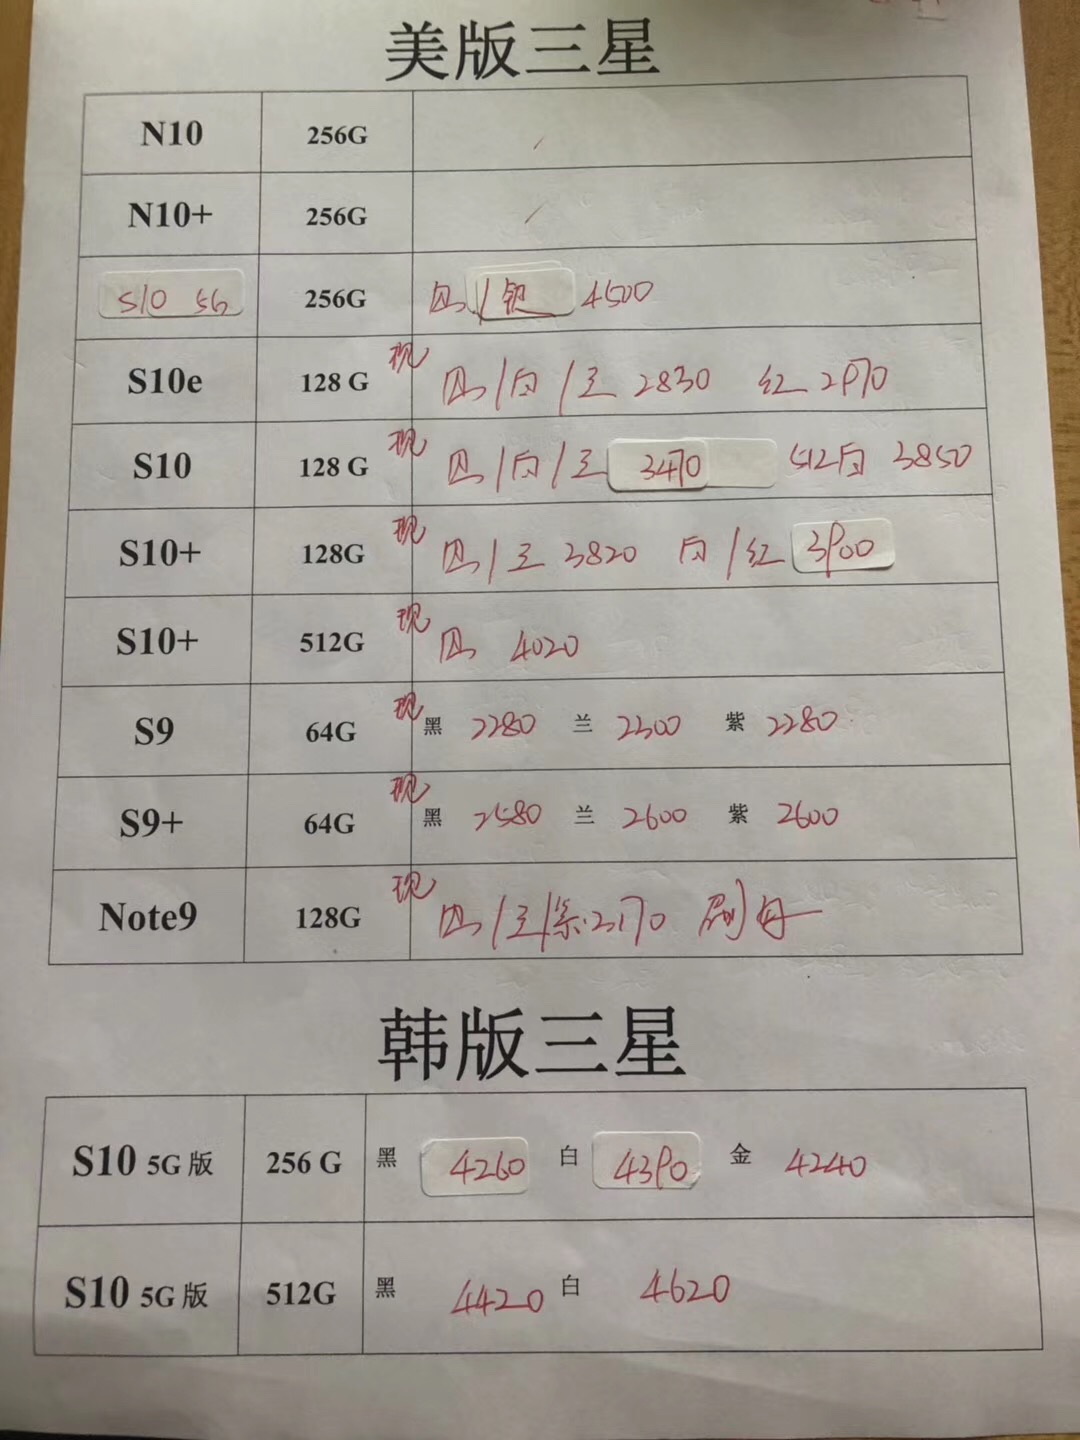 美版三星
N10 256G
N10+ 256G
S10 5G 256G 黑/银 4500
S10e 128 G 现 黑/白/兰 2830 红 2970
S10 128 G 现 黑/白/兰 3470 512白 3850
S10+ 128G 现 黑/兰 3820 白/红 3900
S10+ 512G 现 黑 4020
S9 64G 现 黑 2280 兰 2300 紫 2280
S9+ 64G 现 黑 2580 兰 2600 紫 2600
Note9 128G 现 黑/兰/紫
韩版三星
S10 5G 版 256 G 黑 4260 白 4390 金 4240
S10 5G 版 512G 黑 4420 白 4620